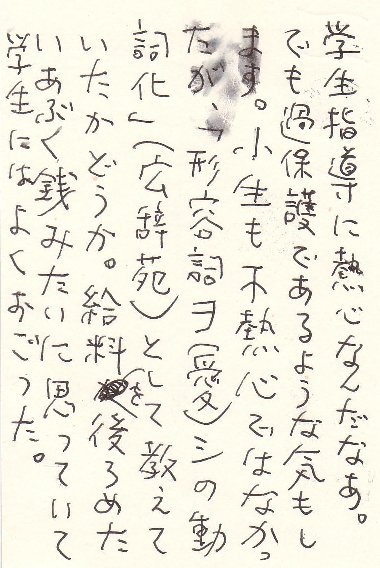 学生指導に熱心なんだなあ。
でも過保護であるような気もし
ます。小生も不熱心ではなかっ
たが、「形容詞ヲ(愛)シの動
詞化」(広辞苑)として教えて
いたかどうか。給料を後ろめた
いあぶく銭みたいに思っていて
学生にはよくおごった。